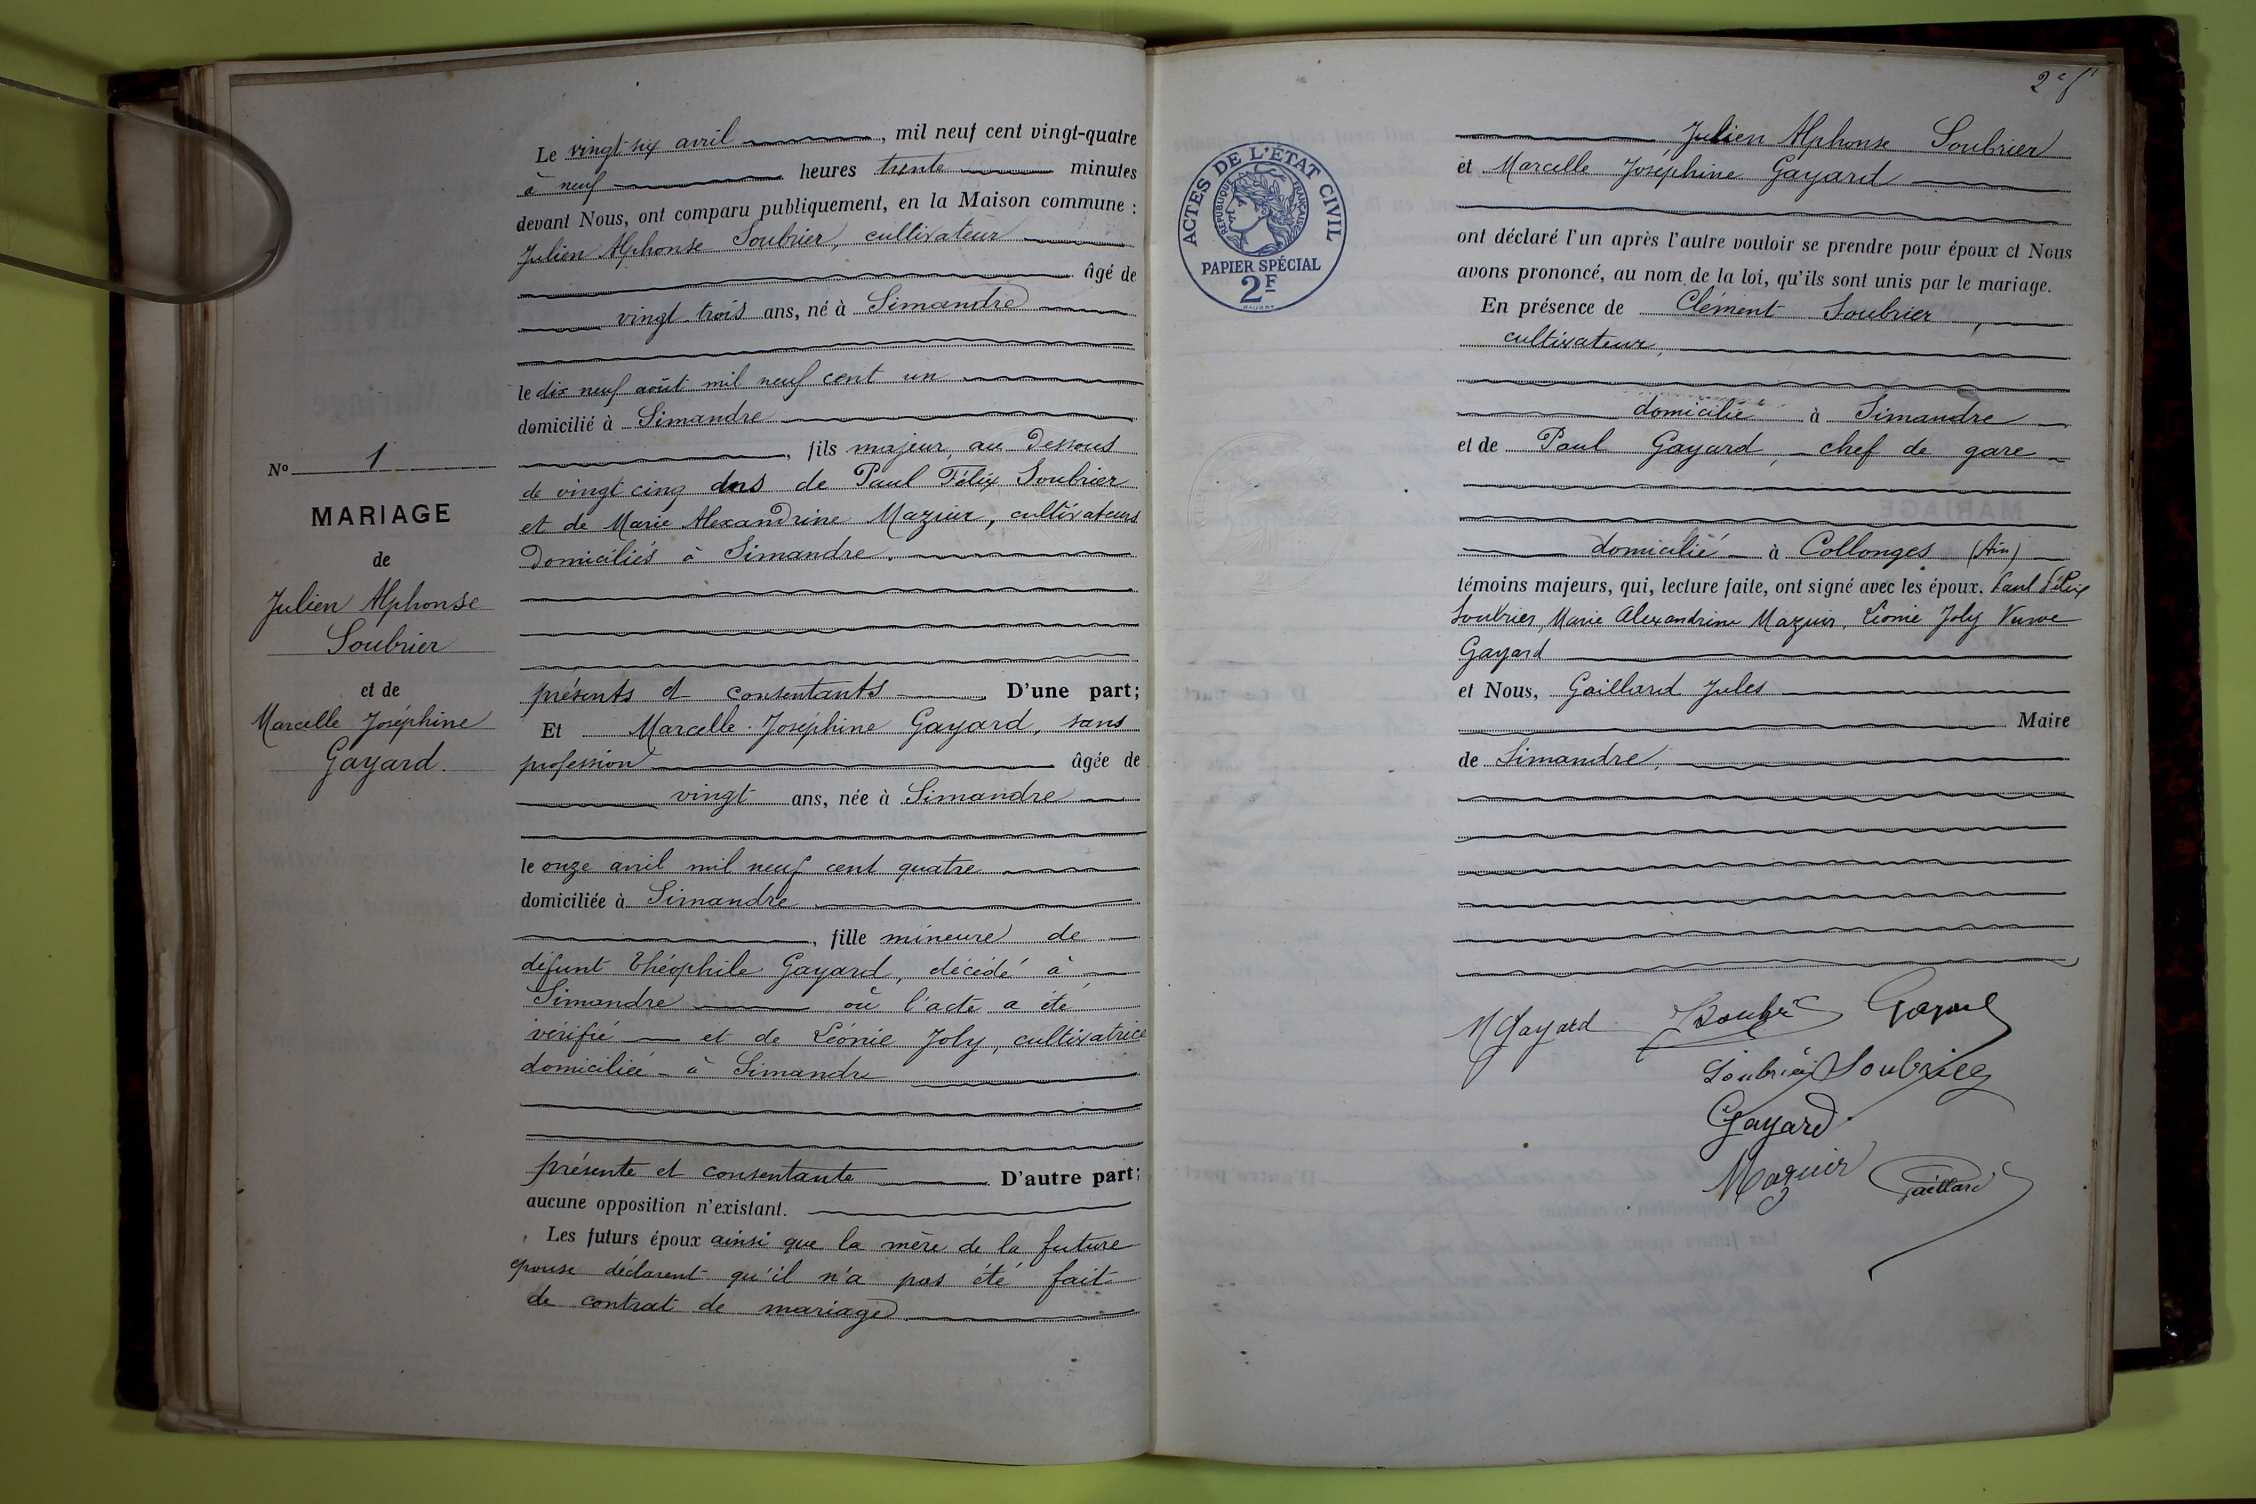 N° 1
MARIAGE
de
Julien Alphonse
Soubrier
et de
Marcelle Joséphine
Gayard.
Le vingt six avril, mil neuf cent vingt-quatre
à neuf heures trente minutes
devant Nous, ont comparu publiquement, en la Maison commune :
Julien Alphonse Soubrier, cultivateur
âgé de
vingt trois ans, né à Simandre
le dix neuf août mil neuf cent un
domicilié à Simandre
, fils majeur, au dessous
de vingt cinq ans de Paul Félix Soubrier
et de Marie Alexandrine Mazuir, cultivateurs
domiciliés à Simandre.
présents et consentants D'une part;
Et Marcelle Joséphine Gayard, sans
profession âgée de
vingt ans, née à Simandre
le onze avril mil neuf cent quatre
domiciliée à Simandre
, fille mineure de
défunt Théophile Gayard, décédé à
Simandre où l'acte a été
vérifié et de Léonie Joly, cultivatrice
domiciliée à Simandre
présente et consentante D'autre part;
aucune opposition n'existant.
Les futurs époux ainsi que la mère de la future
épouse déclarent qu'il n'a pas été fait
de contrat de mariage.
2e f
ACTES DE L'ÉTAT CIVIL
RÉPUBLIQUE FRANÇAISE
PAPIER SPÉCIAL
2F
Julien Alphonse Soubrier
et Marcelle Joséphine Gayard
ont déclaré l'un après l'autre vouloir se prendre pour époux et Nous
avons prononcé, au nom de la loi, qu'ils sont unis par le mariage.
En présence de Clément Soubrier,
cultivateur,
domicilié à Simandre
et de Paul Gayard, chef de gare
domicilié à Collonges (Ain)
témoins majeurs, qui, lecture faite, ont signé avec les époux. Paul Félix
Soubrier, Marie Alexandrine Mazuir, Léonie Joly Veuve
Gayard
et Nous, Gaillard Jules
Maire
de Simandre,
M Gayard Soubrier Gayard
Soubrier Soubrier
Gayard
Mazuir Gaillard